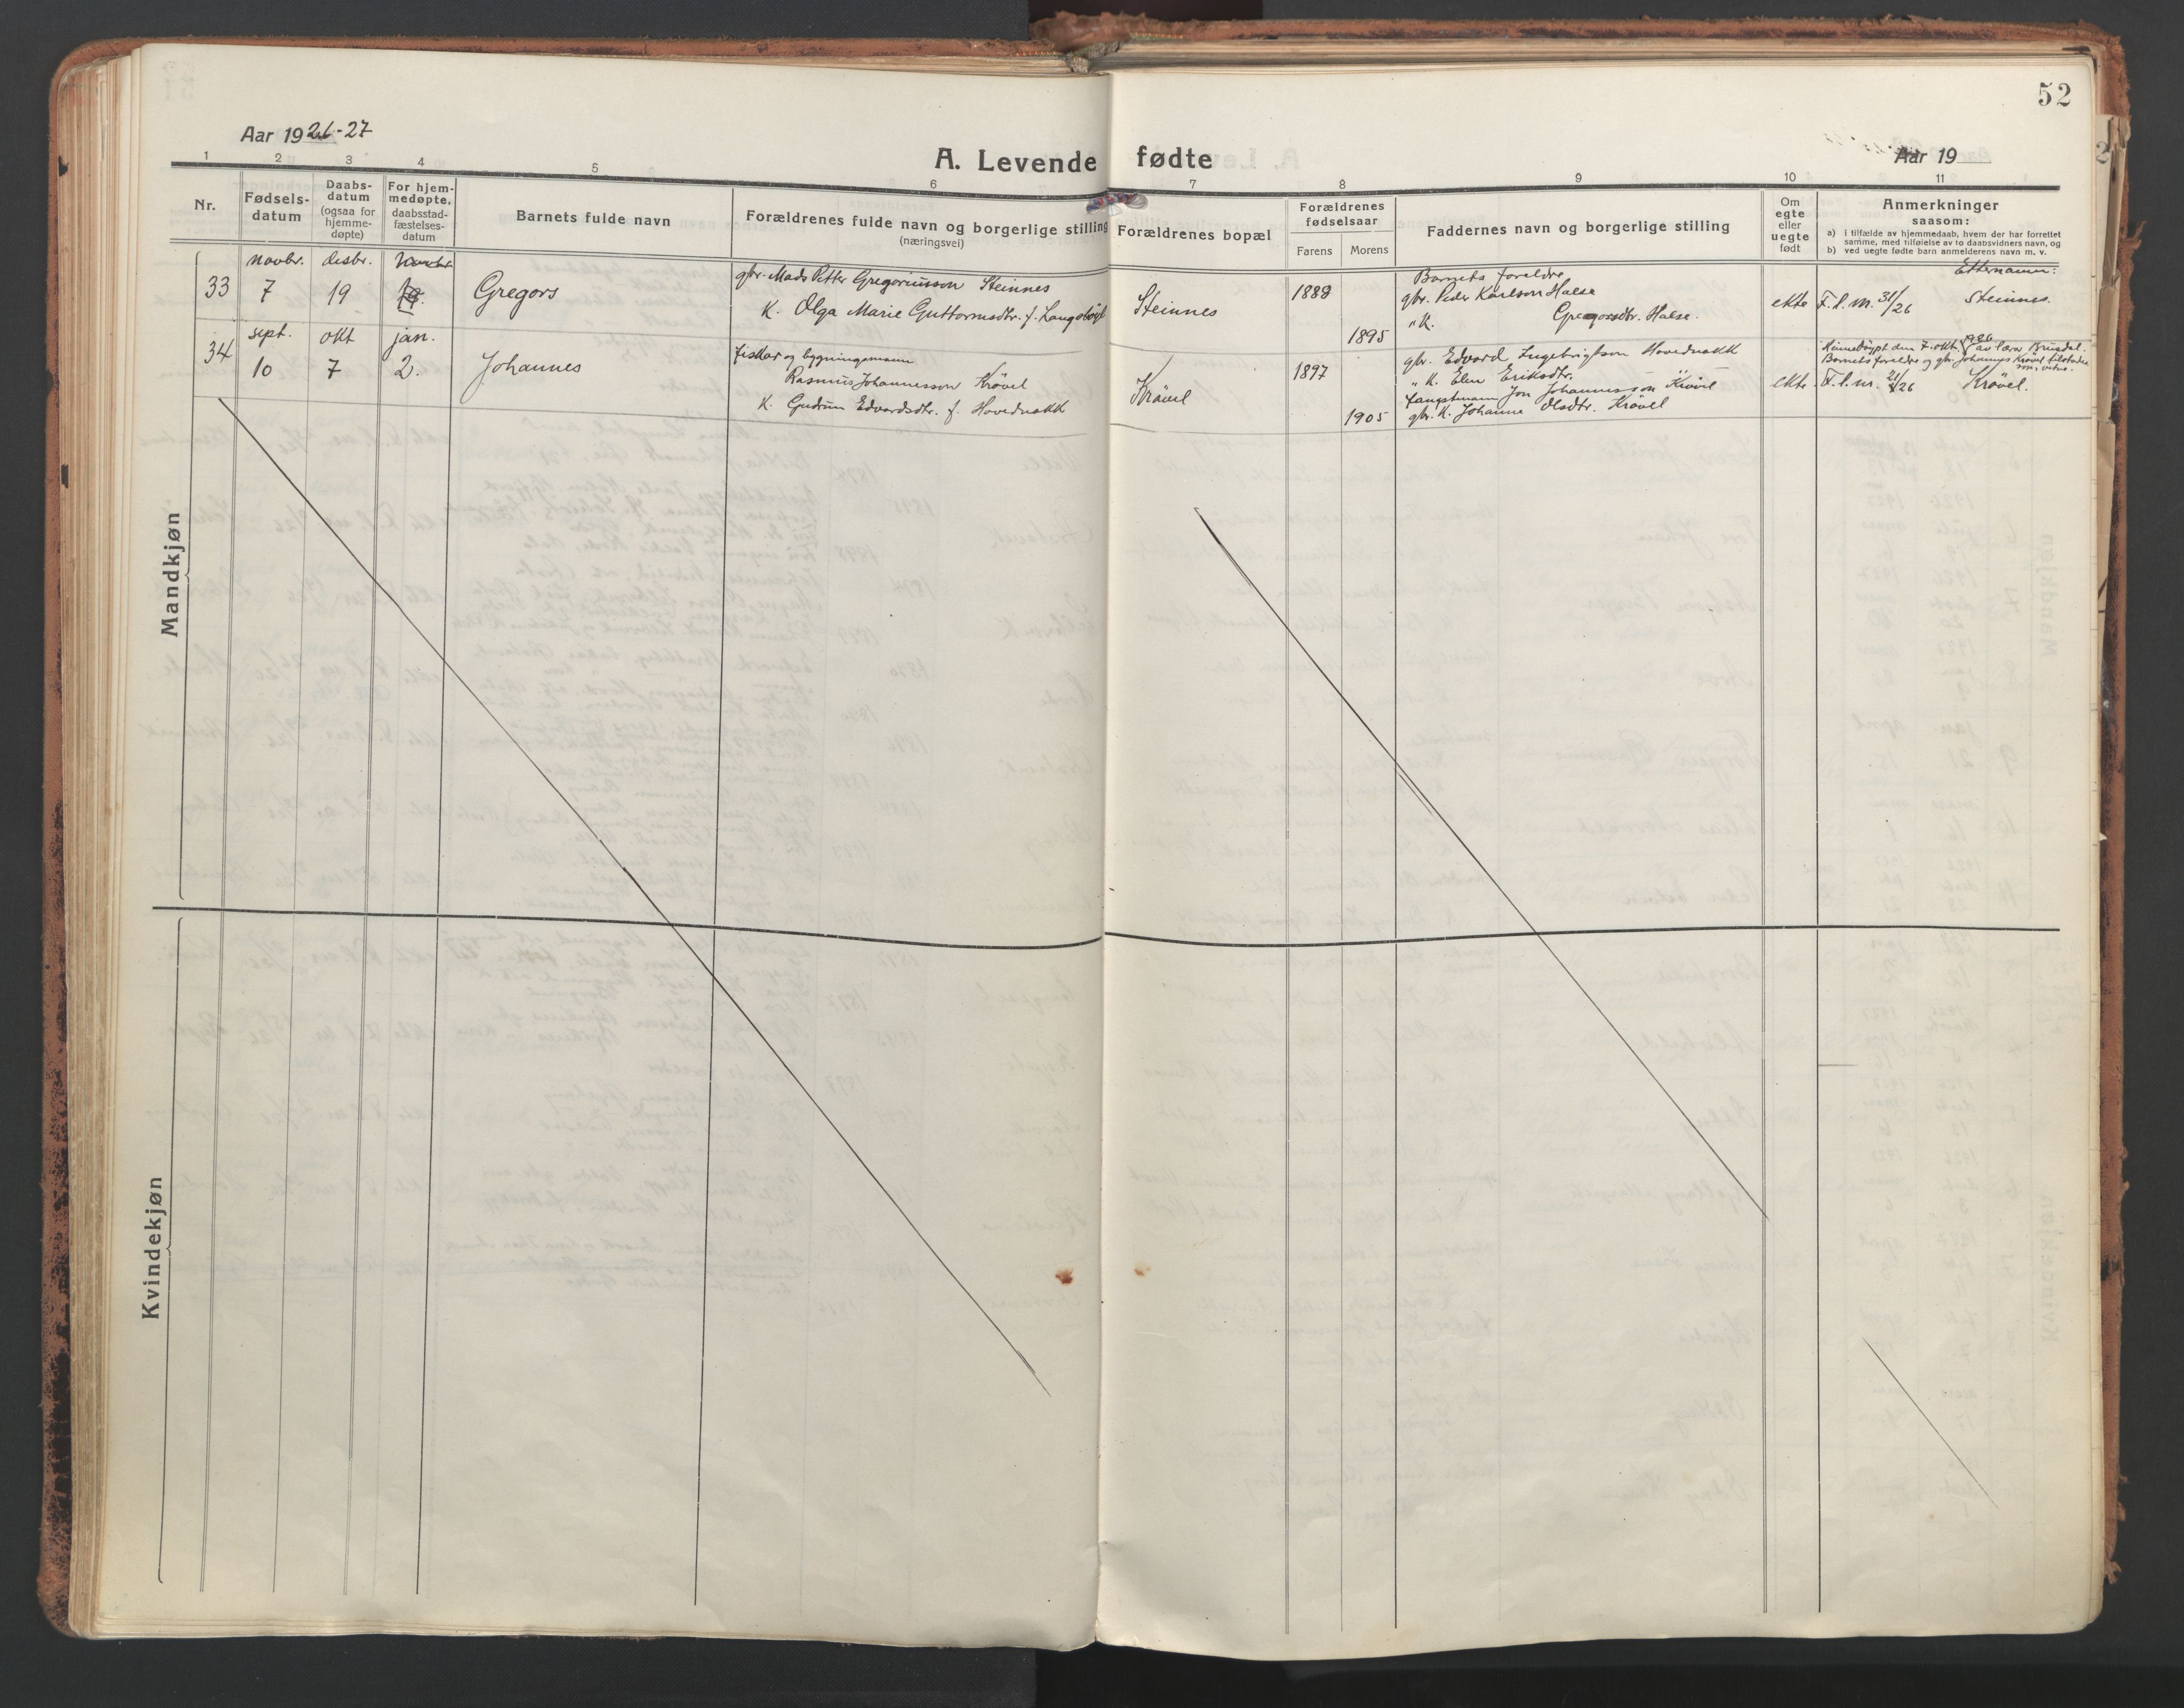 52
Aar 1926-27
A. Levende fødte
Aar 19
1 2 3 4 5 6 7 8 9 10 11
Nr.
Fødsels-
datum
Daabs-
datum
(ogsaa for
hjemme-
døpte)
For hjem-
medøpte,
daabsstad-
fæstelses-
datum
Barnets fulde navn
Forældrenes fulde navn og borgerlige stilling
(næringsvei)
Forældrenes bopæl
Forældrenes
fødselsaar
Farens
Morens
Faddernes navn og borgerlige stilling
Om
egte
eller
uegte
født
Anmerkninger
saasom:
a) i tilfælde av hjemmedaab, hvem der har forrettet
samme, med tilføielse av to daabsvidners navn, og
b) ved uegte fødte barn anmelderens navn m. v.
Mandkjøn
33
novbr.
7
desbr.
19
novbr.
Gregors
gbr. Mads Petter Gregoriusson Steinnes
K. Olga Marie Guttormsdtr. f.
Steinnes
1888
1895
Barnets foreldre
gbr. Peder Karlson Halse
" K. Gregorsdtr. Halse.
ekte
F. l. m. 31/26
Etternamn:
Steinnes.
34
sept.
10
okt
7
jan.
2.
Johannes
fiskar og bygningsmann
Rasmus Johannesson Krøvel
K. Gudrun Edvardsdtr. f. Hovednakk
Krøvel
1897
1905
gbr. Edvard Ingebrigtson Hovednakk
" K. Elen Eriksdtr.
fangstmann Jon Johannesson Krøvel
gbr. K. Johanne Olsdtr. Krøvel
ekte
Heimedøypt den 7. okt. 1926 av lærar Brusdal.
Barnets foreldre og gbr. Johannes Krøvel tilstades
som vitne.
F. l. m. /26
Krøvel.
Kvindekjøn